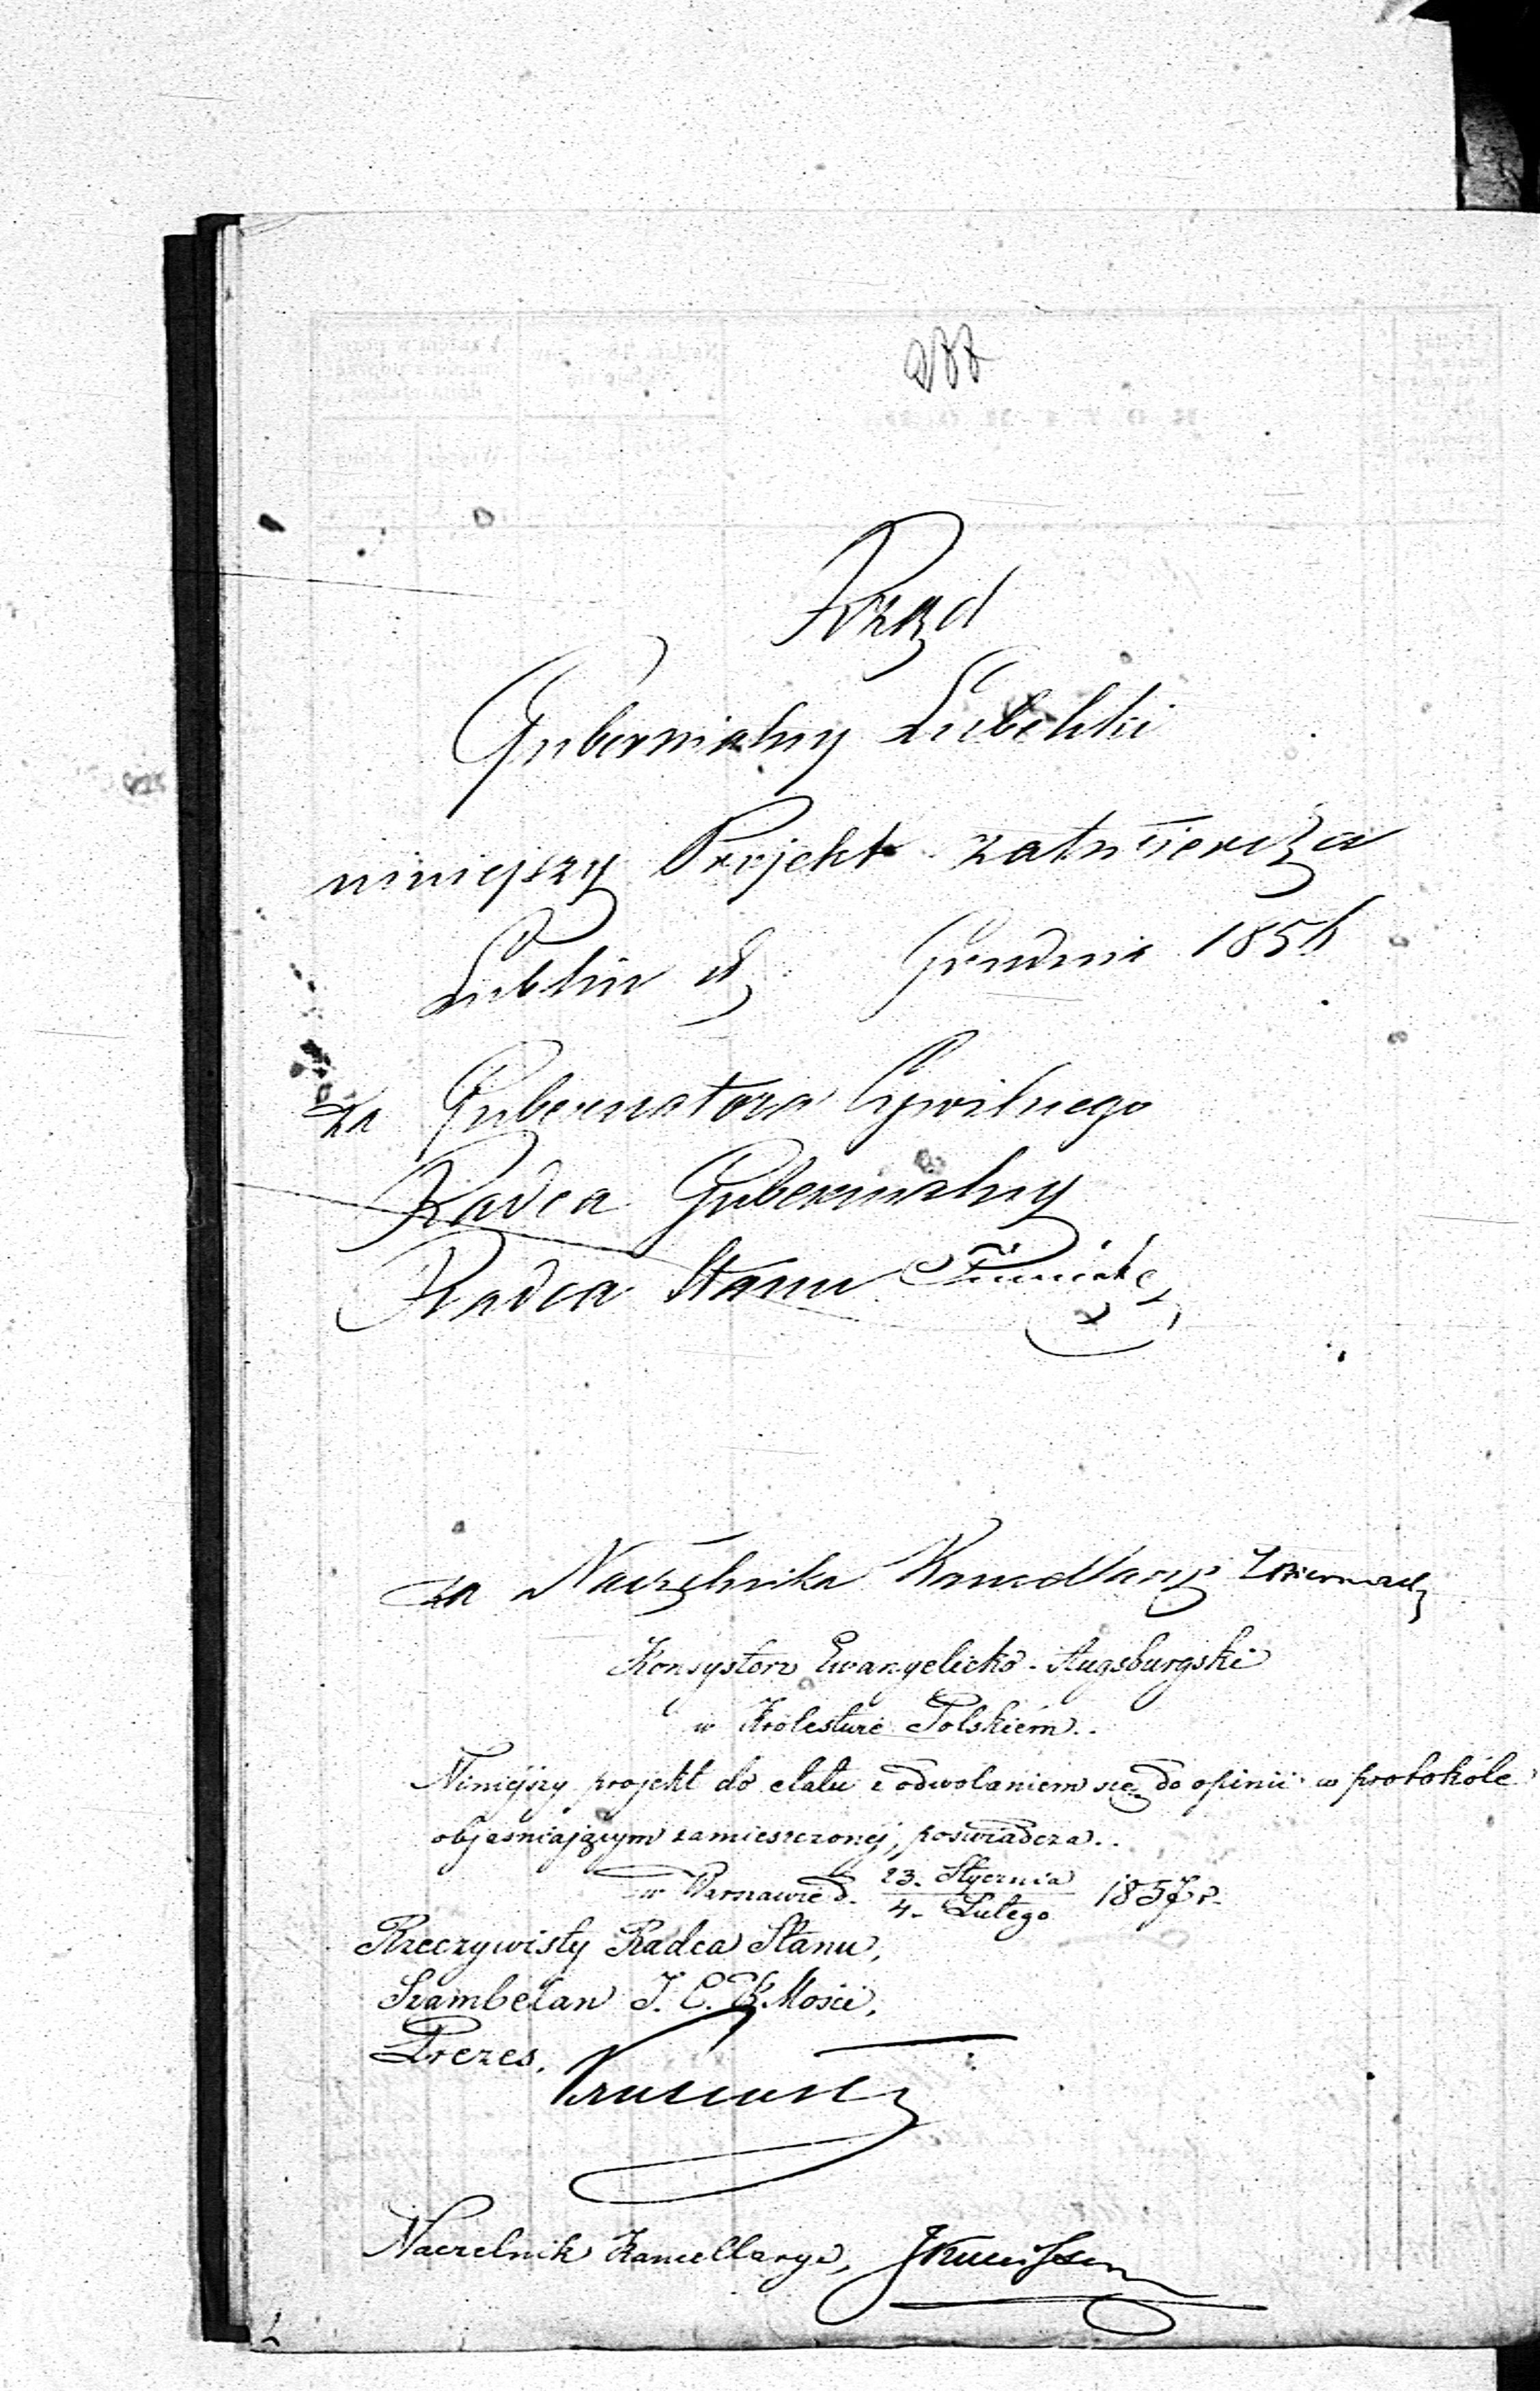 277
Rząd
Gubernialny Lubelski
niniejszy Projekt zatwierdza
Lublin d. Grudnia 1856
za Gubernatora Cywilnego
Radca Gubernialny
Radca Stanu
za Naczelnika Kancellaryi
Konsystorz Ewangelicko-Augsburgski
w Królestwie Polskiém.
Niniejszy projekt do etatu z odwołaniem się do opinii w protokóle
objaśniającym zamieszczonéj, poświadcza.
w Warszawie d. 23. Stycznia / 4. Lutego 1857 r.
Rzeczywisty Radca Stanu,
Szambelan J. C. K. Mości,
Prezes,
Naczelnik Kancellaryi,